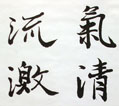 氣清
流激